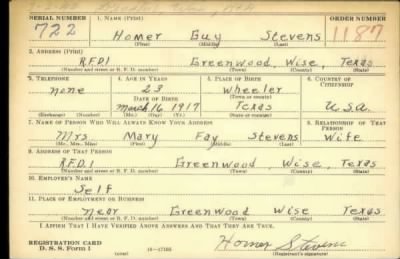 SERIAL NUMBER 1. NAME (Print) ORDER NUMBER
722 Homer Guy Stevens 1187
(First) (Middle) (Last)
2. ADDRESS (Print)
R.F.D.1 Greenwood, Wise, Texas
(Number and street or R. F. D. number) (Town) (County) (State)
3. TELEPHONE 4. AGE IN YEARS 5. PLACE OF BIRTH 6. COUNTRY OF CITIZENSHIP
none 23 Wheeler
DATE OF BIRTH (Town or county)
March 16 1917 Texas U.S.A.
(Exchange) (Number) (Mo.) (Day) (Yr.) (State or country)
7. NAME OF PERSON WHO WILL ALWAYS KNOW YOUR ADDRESS 8. RELATIONSHIP OF THAT PERSON
Mrs Mary Fay Stevens Wife
(Mr., Mrs., Miss) (First) (Middle) (Last)
9. ADDRESS OF THAT PERSON
R.F.D.1 Greenwood, Wise, Texas
(Number and street or R. F. D. number) (Town) (County) (State)
10. EMPLOYER'S NAME
Self
11. PLACE OF EMPLOYMENT OR BUSINESS
Near Greenwood Wise Texas
(Number and street or R. F. D. number) (Town) (County) (State)
I AFFIRM THAT I HAVE VERIFIED ABOVE ANSWERS AND THAT THEY ARE TRUE.
REGISTRATION CARD
D. S. S. Form 1 (over) Homer Stevens
(Registrant's signature)